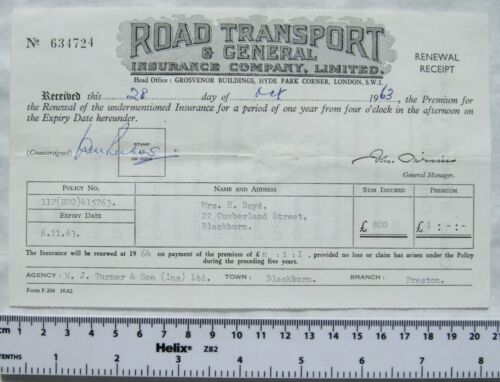 Nº 634724
ROAD TRANSPORT
& GENERAL
INSURANCE COMPANY, LIMITED.
RENEWAL
RECEIPT
Head Office : GROSVENOR BUILDINGS, HYDE PARK CORNER, LONDON, S.W.1.
Received this 28 day of Oct 1963, the Premium for
the Renewal of the undermentioned Insurance for a period of one year from four o'clock in the afternoon on
the Expiry Date hereunder.
(Countersigned)
STAMP
General Manager.
POLICY NO. NAME AND ADDRESS SUM INSURED PREMIUM
11F(HCO)415763. Mrs. H. Boyd,
22 Cumberland Street,
Blackburn.
£ 800 £ 1 :-:-
EXPIRY DATE
6.11.63.
The Insurance will be renewed at 1964 on payment of the premium of £ n : i : l , provided no loss or claim has arisen under the Policy
during the preceding five years.
AGENCY: W. J. Turner & Son (Ins) Ltd. TOWN: Blackburn. BRANCH: Preston.
Form F.204 10.62
cm 1 2 3 4 5 6 7 8 9 10 11 12 13 14 15 16 17 18 19 20 21
Helix Z82
TENTHS 1 2 3 4 5 6 7 8